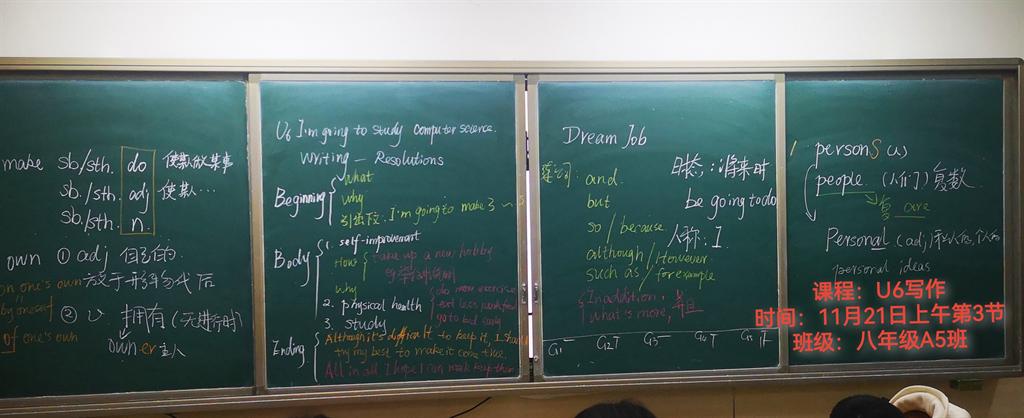 make sb/sth. do 使某人做某事
sb./sth. adj 使某人…
sb./sth. n.
own ① adj 自己的
on one's own 放于形物代后
by oneself
② v. 拥有(无进行时)
of one's own
owner 主人
U6 I'm going to study computer science.
Writing — Resolutions
Beginning
what
why
引出下文. I'm going to make 3
Body
1. self-improvement
How
take up a new hobby
why
do more exercise
eat less junk food
go to bed early
2. physical health
3. study
Ending
Although it's difficult to keep it, I should
try my best to make it come true.
All in all, I hope I can keep them
Dream Job
时态:将来时
and
be going to do
but
so / because
人称: I
although / However
such as / for example
In addition,
what's more,
G1 G2 G3 G4 G5
persons
people (人们) 复数
are
Personal (adj)
personal ideas
课程:U6写作
时间:11月21日上午第3节
班级:八年级A5班